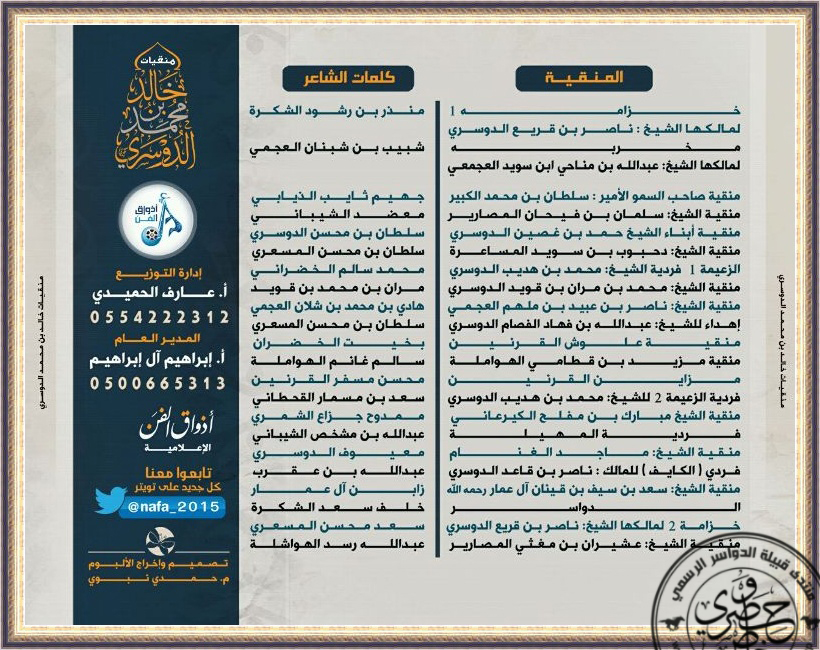 المنقية
كلمات الشاعر
خزامه 1
منذر بن رشود الشكرة
لمالكها الشيخ : ناصر بن قريع الدوسري
مخربه
شبيب بن شبنان العجمي
لمالكها الشيخ: عبدالله بن مناحي ابن سويد العجمعي
منقية صاحب السمو الأمير : سلطان بن محمد الكبير
جهيم ثايب الذيابي
منقية الشيخ: سلمان بن فيحان المصارير
معضد الشيباني
منقية أبناء الشيخ حمد بن غصين الدوسري
سلطان بن محسن الدوسري
منقية الشيخ: دحبوب بن سويد المساعرة
سلطان بن محسن المسعري
الزعيمة 1 فردية الشيخ: محمد بن هديب الدوسري
محمد سالم الخضراني
منقية الشيخ: محمد بن مران بن قويد الدوسري
مران بن محمد بن قويد
منقية الشيخ: ناصر بن عبيد بن ملهم العجمي
هادي بن محمد بن شلان العجمي
إهداء للشيخ: عبدالله بن فهاد الفصام الدوسري
سلطان بن محسن المسعري
منقية علوش القرنين
بخيت الخضران
منقية مزيد بن قطامي الهواملة
سالم غانم الهواملة
مزاين القرنين
محسن مسفر القرنين
فردية الزعيمة 2 للشيخ: محمد بن هديب الدوسري
سعد بن مسمار القحطاني
منقية الشيخ مبارك بن مفلح الكيرعاني
ممدوح جزاع الشمري
فردية المهيلة
عبدالله بن مشخص الشيباني
منقية الشيخ: ماجد الغنام
معيوف الدوسري
فردي ( الكايف ) للمالك : ناصر بن قاعد الدوسري
عبدالله بن عقرب
منقية الشيخ: سعد بن سيف بن قينان آل عمار رحمه الله
زابن آل عمار
الدواسر
خلف سعد الشكرة
خزامة 2 لمالكها الشيخ: ناصر بن قريع الدوسري
سعد محسن المسعري
منقية الشيخ: عشيران بن مغثي المصارير
عبدالله رسد الهواشلة
منقيات
خالد
بن
محمد
الدوسري
أذواق
الفن
إدارة التوزيع
أ. عارف الحميدي
0554222312
المدير العام
أ. إبراهيم آل إبراهيم
0500665313
أذواق الفن
الإعلامية
تابعوا معنا
كل جديد على تويتر
@nafa_2015
تصميم وإخراج الألبوم
م. حمدي نبوي
منقيات خالد بن محمد الدوسري
منقيات خالد بن محمد الدوسري
منتدى قبيلة الدواسر الرسمي